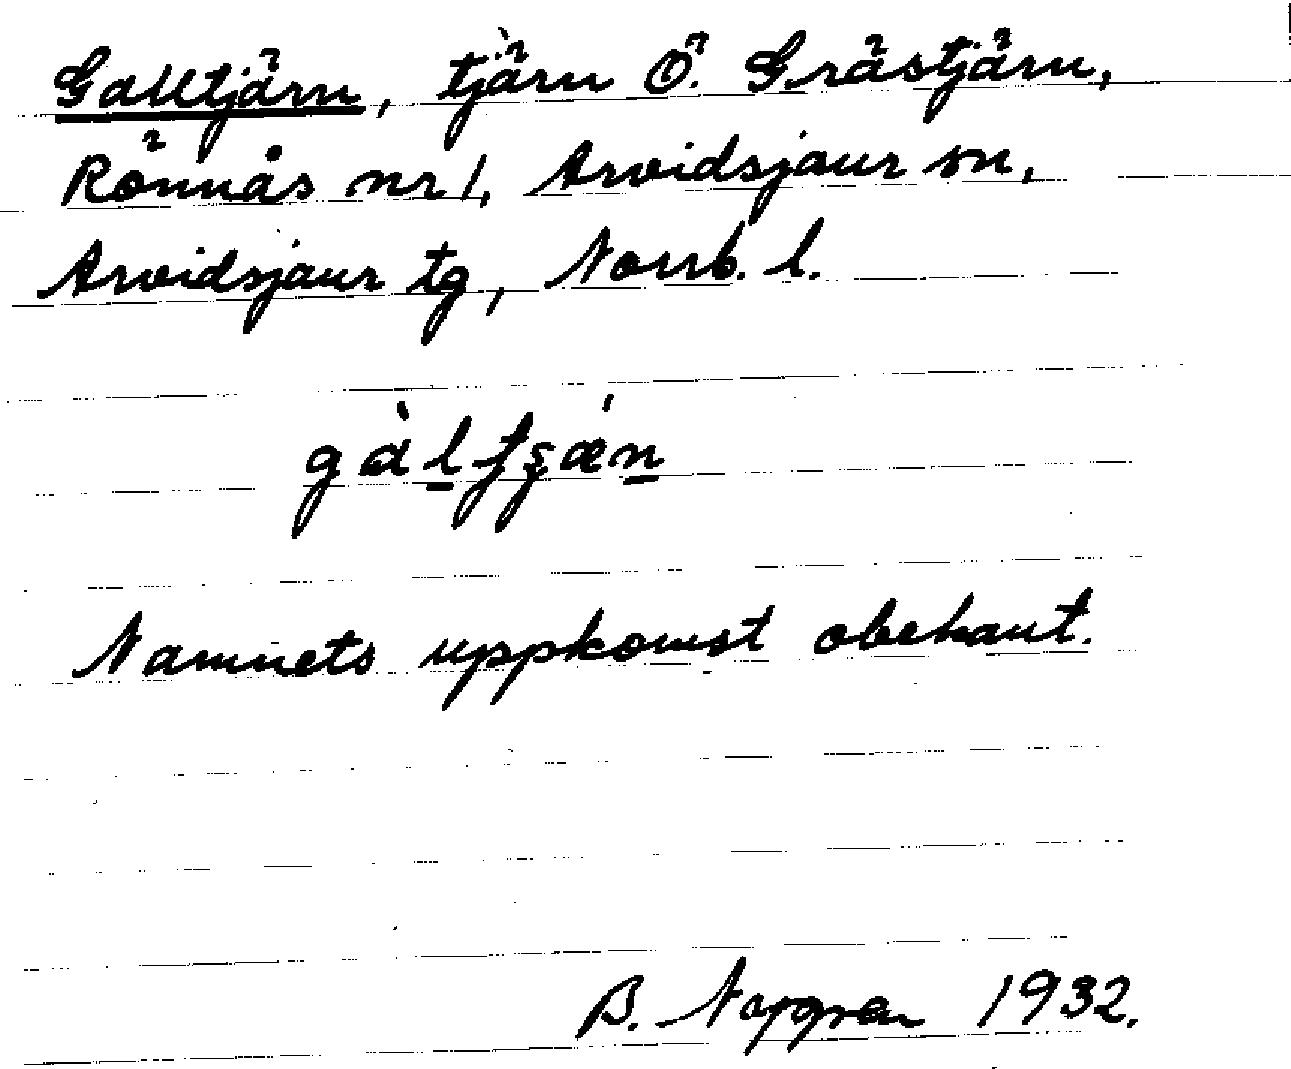 Galltjärn, tjärn Ö. Grästjärn,
Rönnås nr 1, Arvidsjaur sn,
Arvidsjaur tg, Norrb. l.
Namnets uppkomst obekant.
B. 1932.